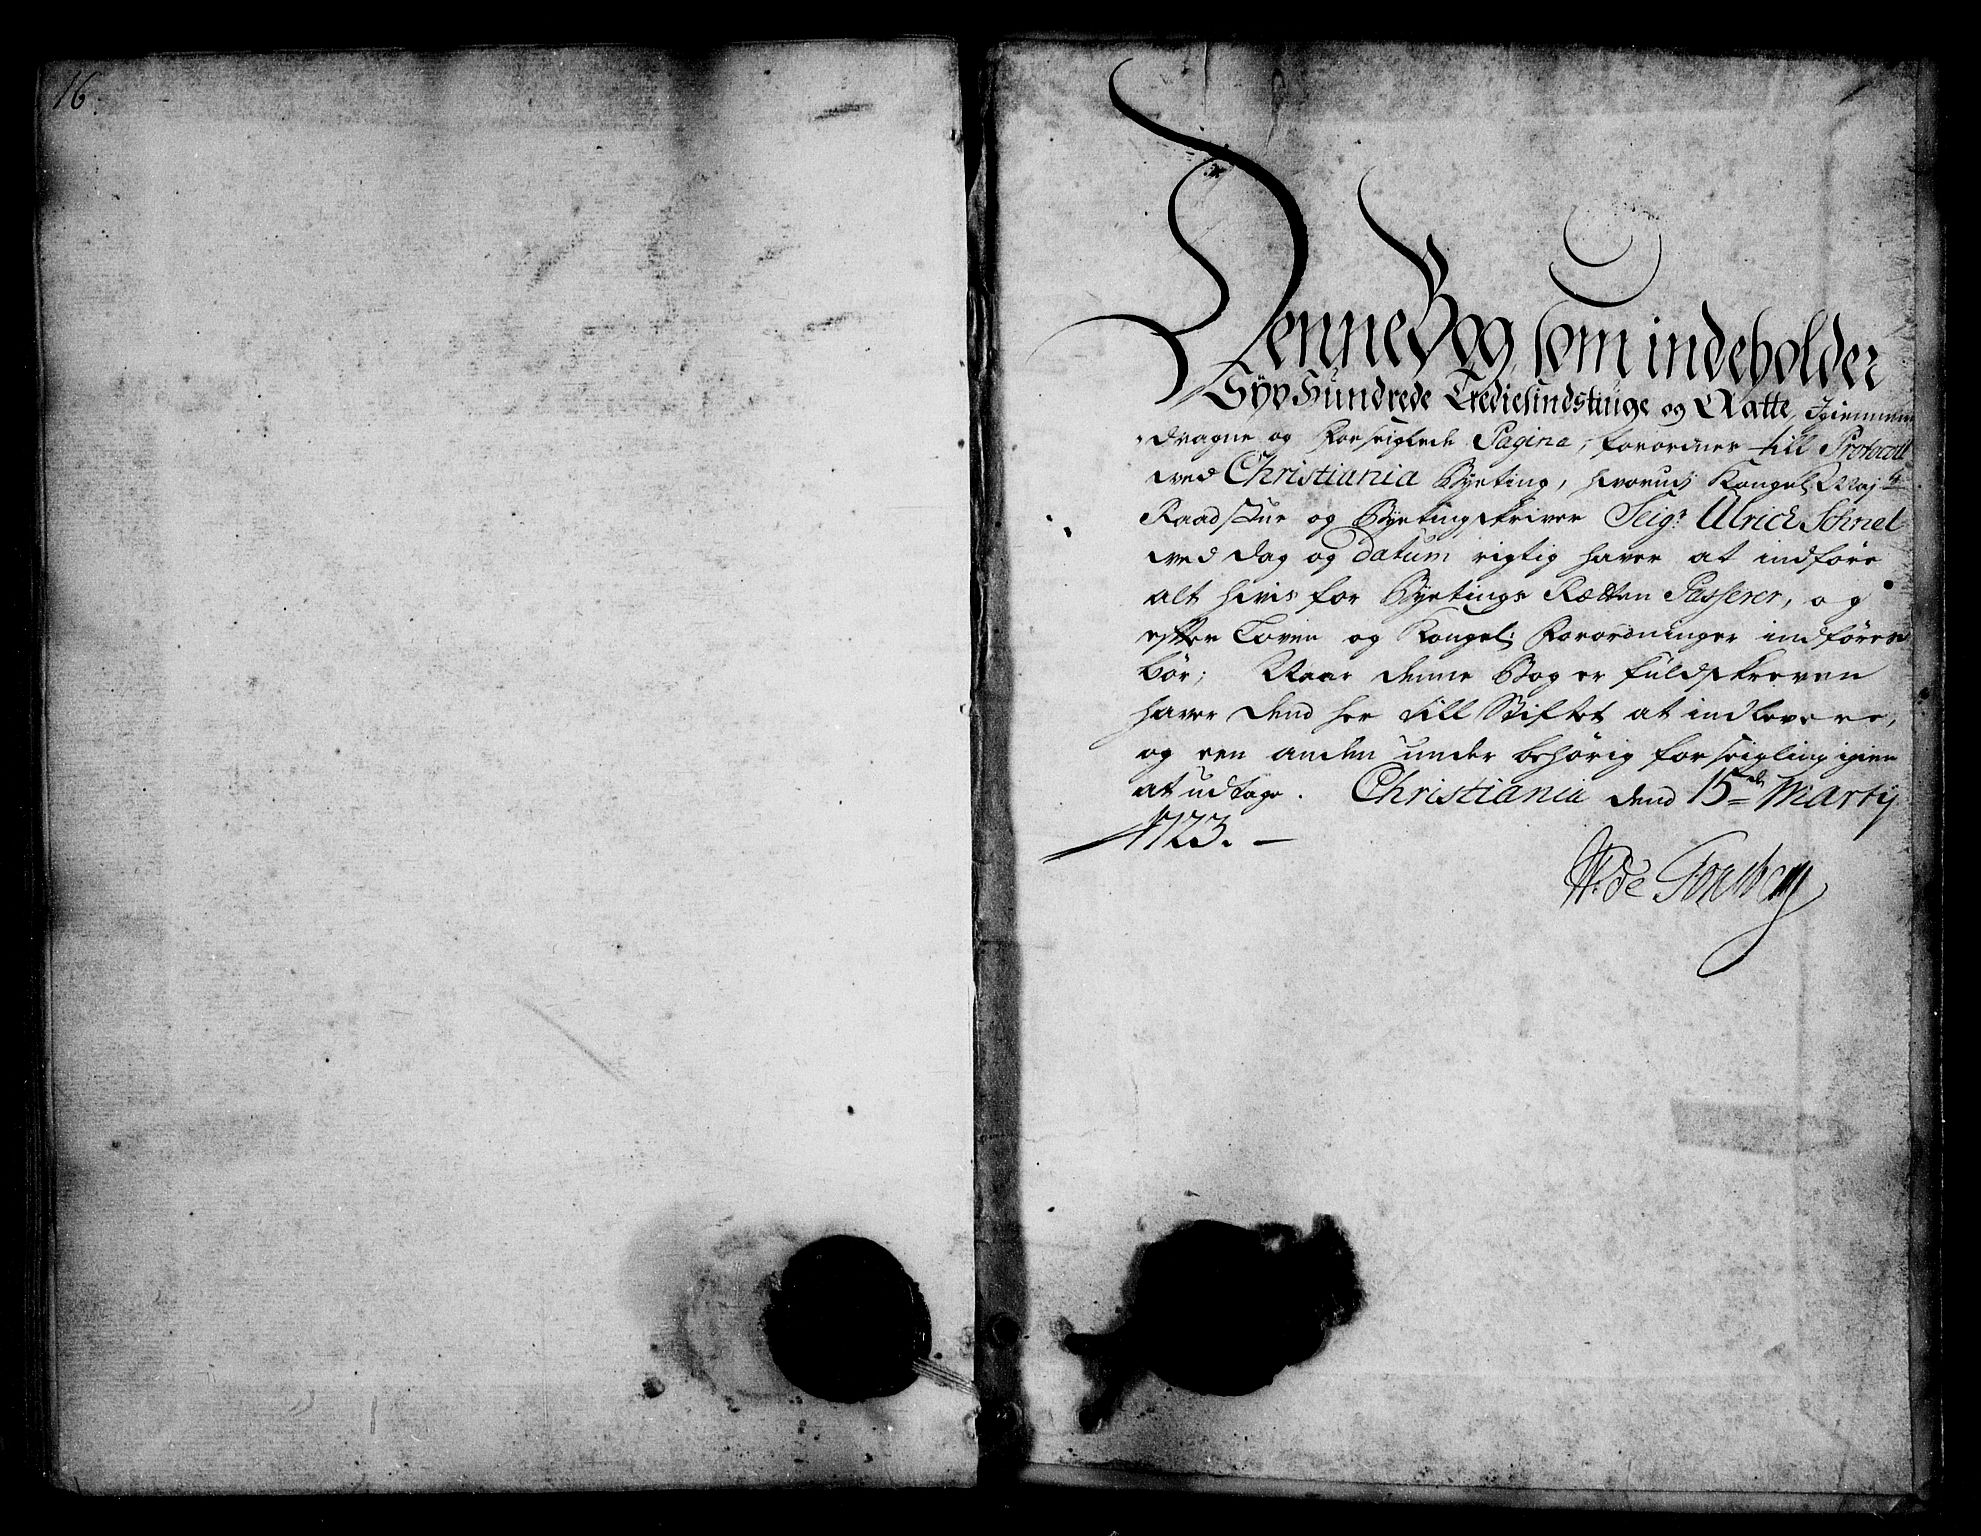 16.
1
Denne Bog, som indeholder
Syv Hundrede Trediesindstiuge og Aatte, Igiennem
dragne og Forseiglede Pagina, forordnes till Protocoll
ved Christiania Byeting, hvorudj Kongel: Maj:ts
Raadstue og Byetingskriver Seig:r Ulrich Schnel
ved dag og datum rigtig haver at indføre
alt hvis for Byetings Rætten Passerer, og
efter Loven og Kongel: Forordninger indføres
bør; Naar denne Bog er fuldskreven
haver dend her till Stiftet at indlevere,
og een anden under behørig forseigling igien
at udtage. Christiania dend 15de Martij
1723. —
W: de Tonsberg